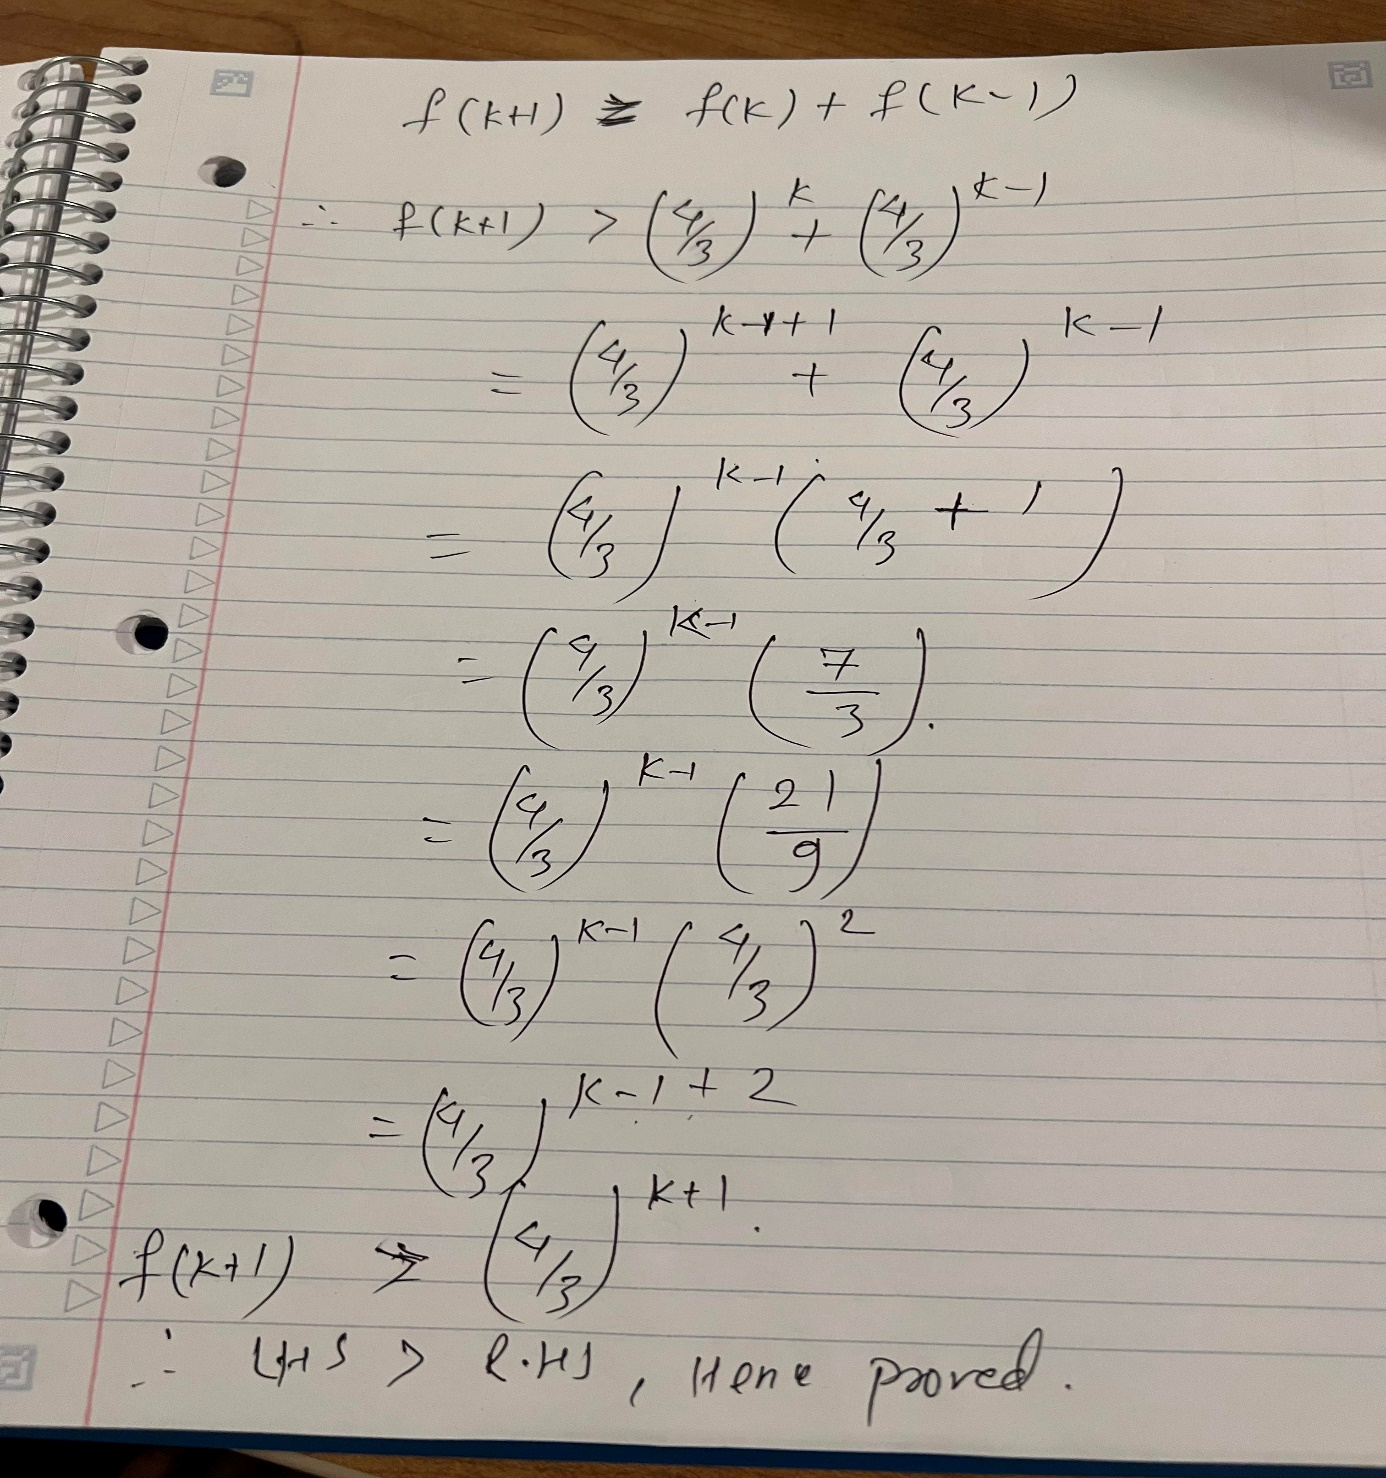 f(k+1) ≥ f(k) + f(k-1)
∴ f(k+1) > (4/3)^k + (4/3)^(k-1)
= (4/3)^(k-1+1) + (4/3)^(k-1)
= (4/3)^(k-1) (4/3 + 1)
= (4/3)^(k-1) (7/3).
= (4/3)^(k-1) (21/9)
= (4/3)^(k-1) (4/3)^2
= (4/3)^(k-1+2)
f(k+1) > (4/3)^(k+1).
∴ LHS > R.HS, Hence proved.